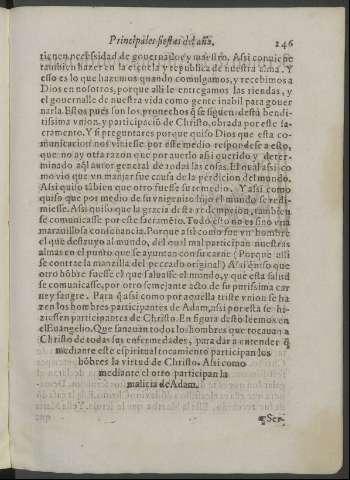 Principales fiestas del año. 246
tienen necessidad de gouernalle y maestro. Asi conuiene
tambien hazer en la escuela y republica de nuestra alma. Y
esso es lo que hazemos quando comulgamos, y recebimos a
Dios en nosotros, porque alli le entregamos las riendas, y
el gouernalle de nuestra vida como gente inabil para gouer
narla. Estos pues son los prouechos q̃ se siguen desta bendi-
tissima vnion, y participacio᷈ de Christo, obrada por este sa-
cramento. Y si preguntares porque quiso Dios que esta co-
municacion nos viniesse por este medio respondese a esto,
que no ay otra razon que por auerlo asi querido y deter-
minado aq̃l autor general de todas las cosas. El qual asi co
mo vio que vn manjar fue causa de la perdicion del mundo.
Asi quiso tãbien que otro fuesse su remedio. Y asi como
quiso que por medio de su vnigenito hijo el mundo se redi-
miesse. Asi quiso que la gracia desta redempcion, tambien
se comunicasse por este sacramẽto. Todo esto no es sino vna
marauillosa consonancia. Porque asi como fue vn hombre
el que destruyo al mundo, del qual mal participan nuestras
almas en el punto que se ayuntan con su carne (Porque alli
se contrae la manzilla del peccado original) Asi q̃uiso que
otro hõbre fuesse el que saluasse el mundo, y que esta salud
se comunicasse, por otro semejante acto de su purissima car
ne y sangre. Para q̃ asi como por aquella triste vnion se ha
zen los hombres participantes de Adam, asi por esta se hi-
ziessen participantes de Christo. En figura desto leemos en
el Euangelio. Que sanauan todos los hombres que tocauan a
Christo de todas sus enfermedades, para dar a entender q̃
mediante este espiritual tocamiento participan los
hõbres la virtud de Christo. Asi como
mediante el otro participan la
malicia de Adam.
¶Ser-